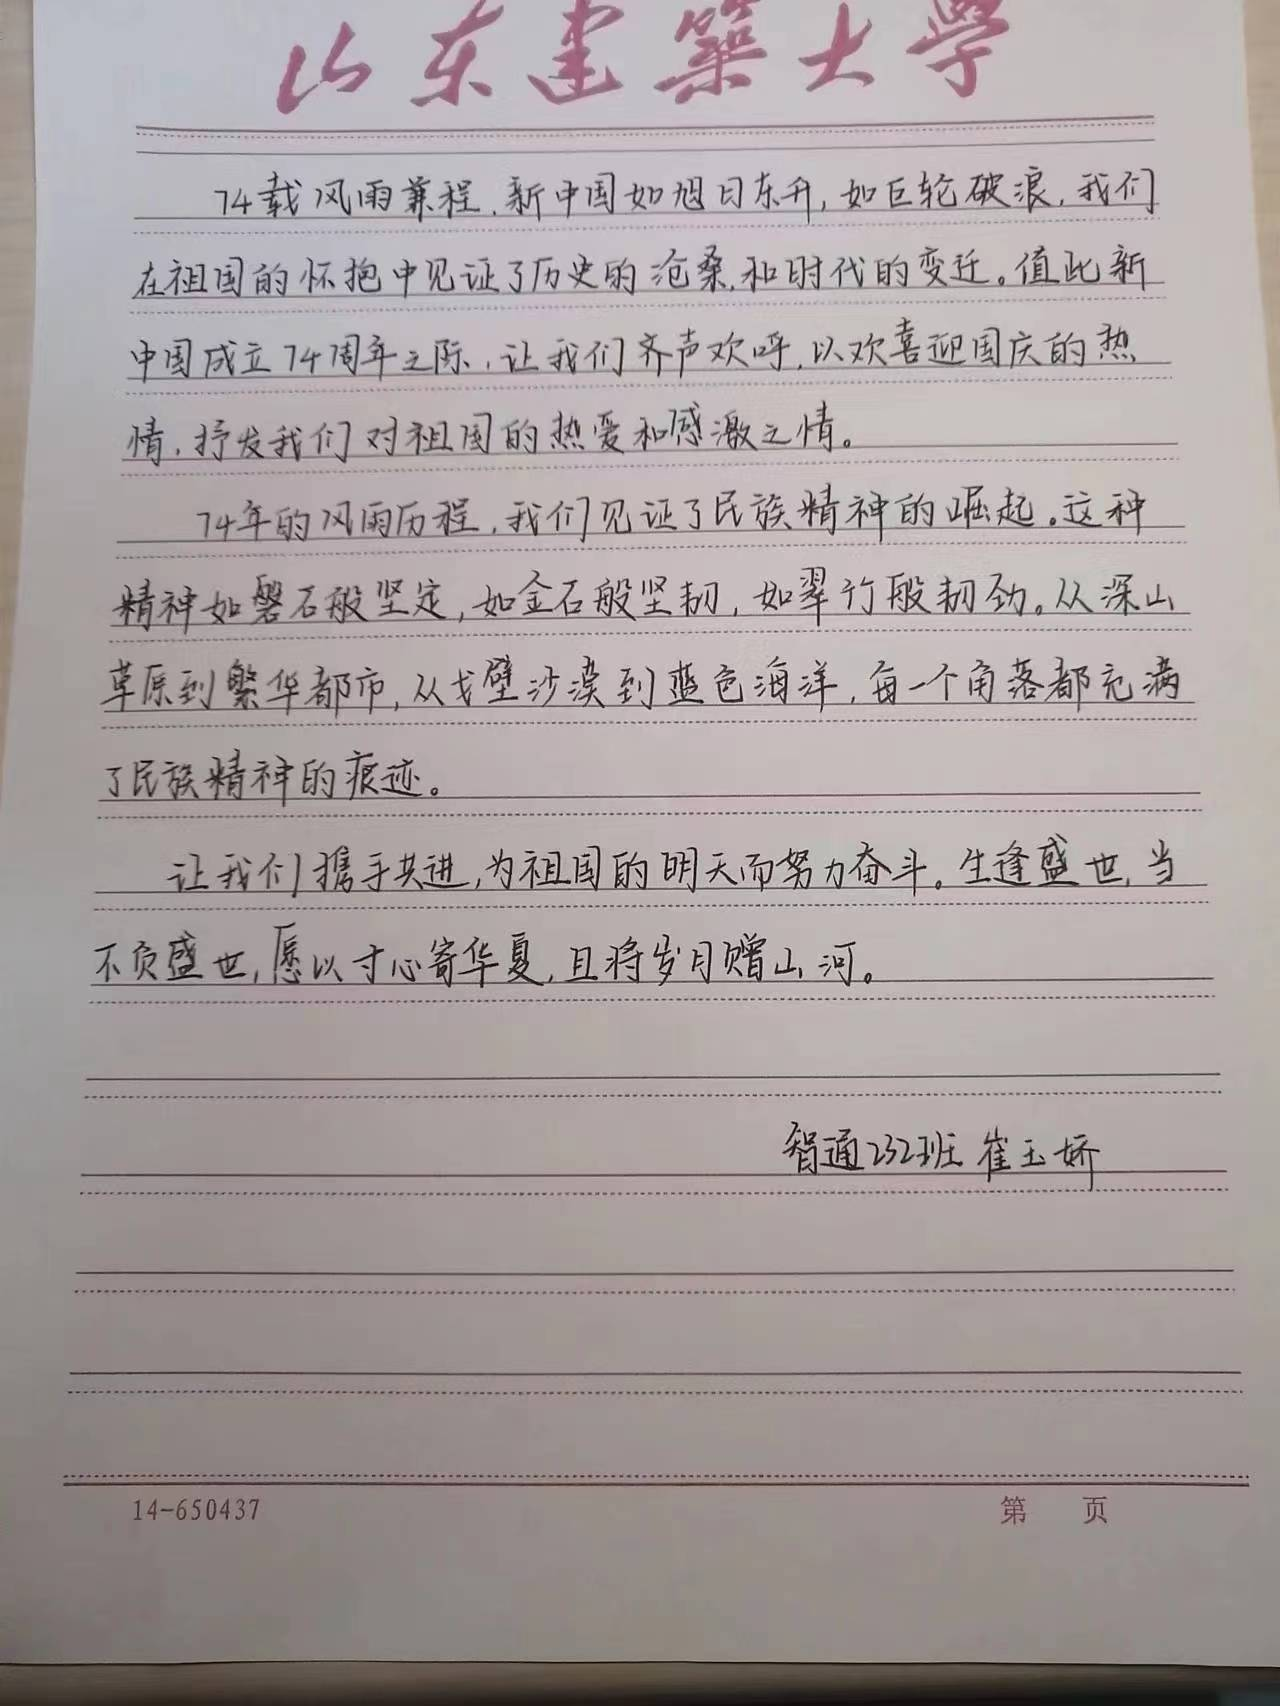 山东建築大學
74载风雨兼程,新中国如旭日东升,如巨轮破浪,我们
在祖国的怀抱中见证了历史的沧桑,和时代的变迁。值此新
中国成立74周年之际,让我们齐声欢呼,以欢喜迎国庆的热
情,抒发我们对祖国的热爱和感激之情。
74年的风雨历程,我们见证了民族精神的崛起。这种
精神如磐石般坚定,如金石般坚韧,如翠竹般韧劲。从深山
草原到繁华都市,从戈壁沙漠到蓝色海洋,每一个角落都充满
了民族精神的痕迹。
让我们携手共进,为祖国的明天而努力奋斗。生逢盛世,当
不负盛世,愿以寸心寄华夏,且将岁月赠山河。
智通232班 崔玉娇
14-650437 第 页